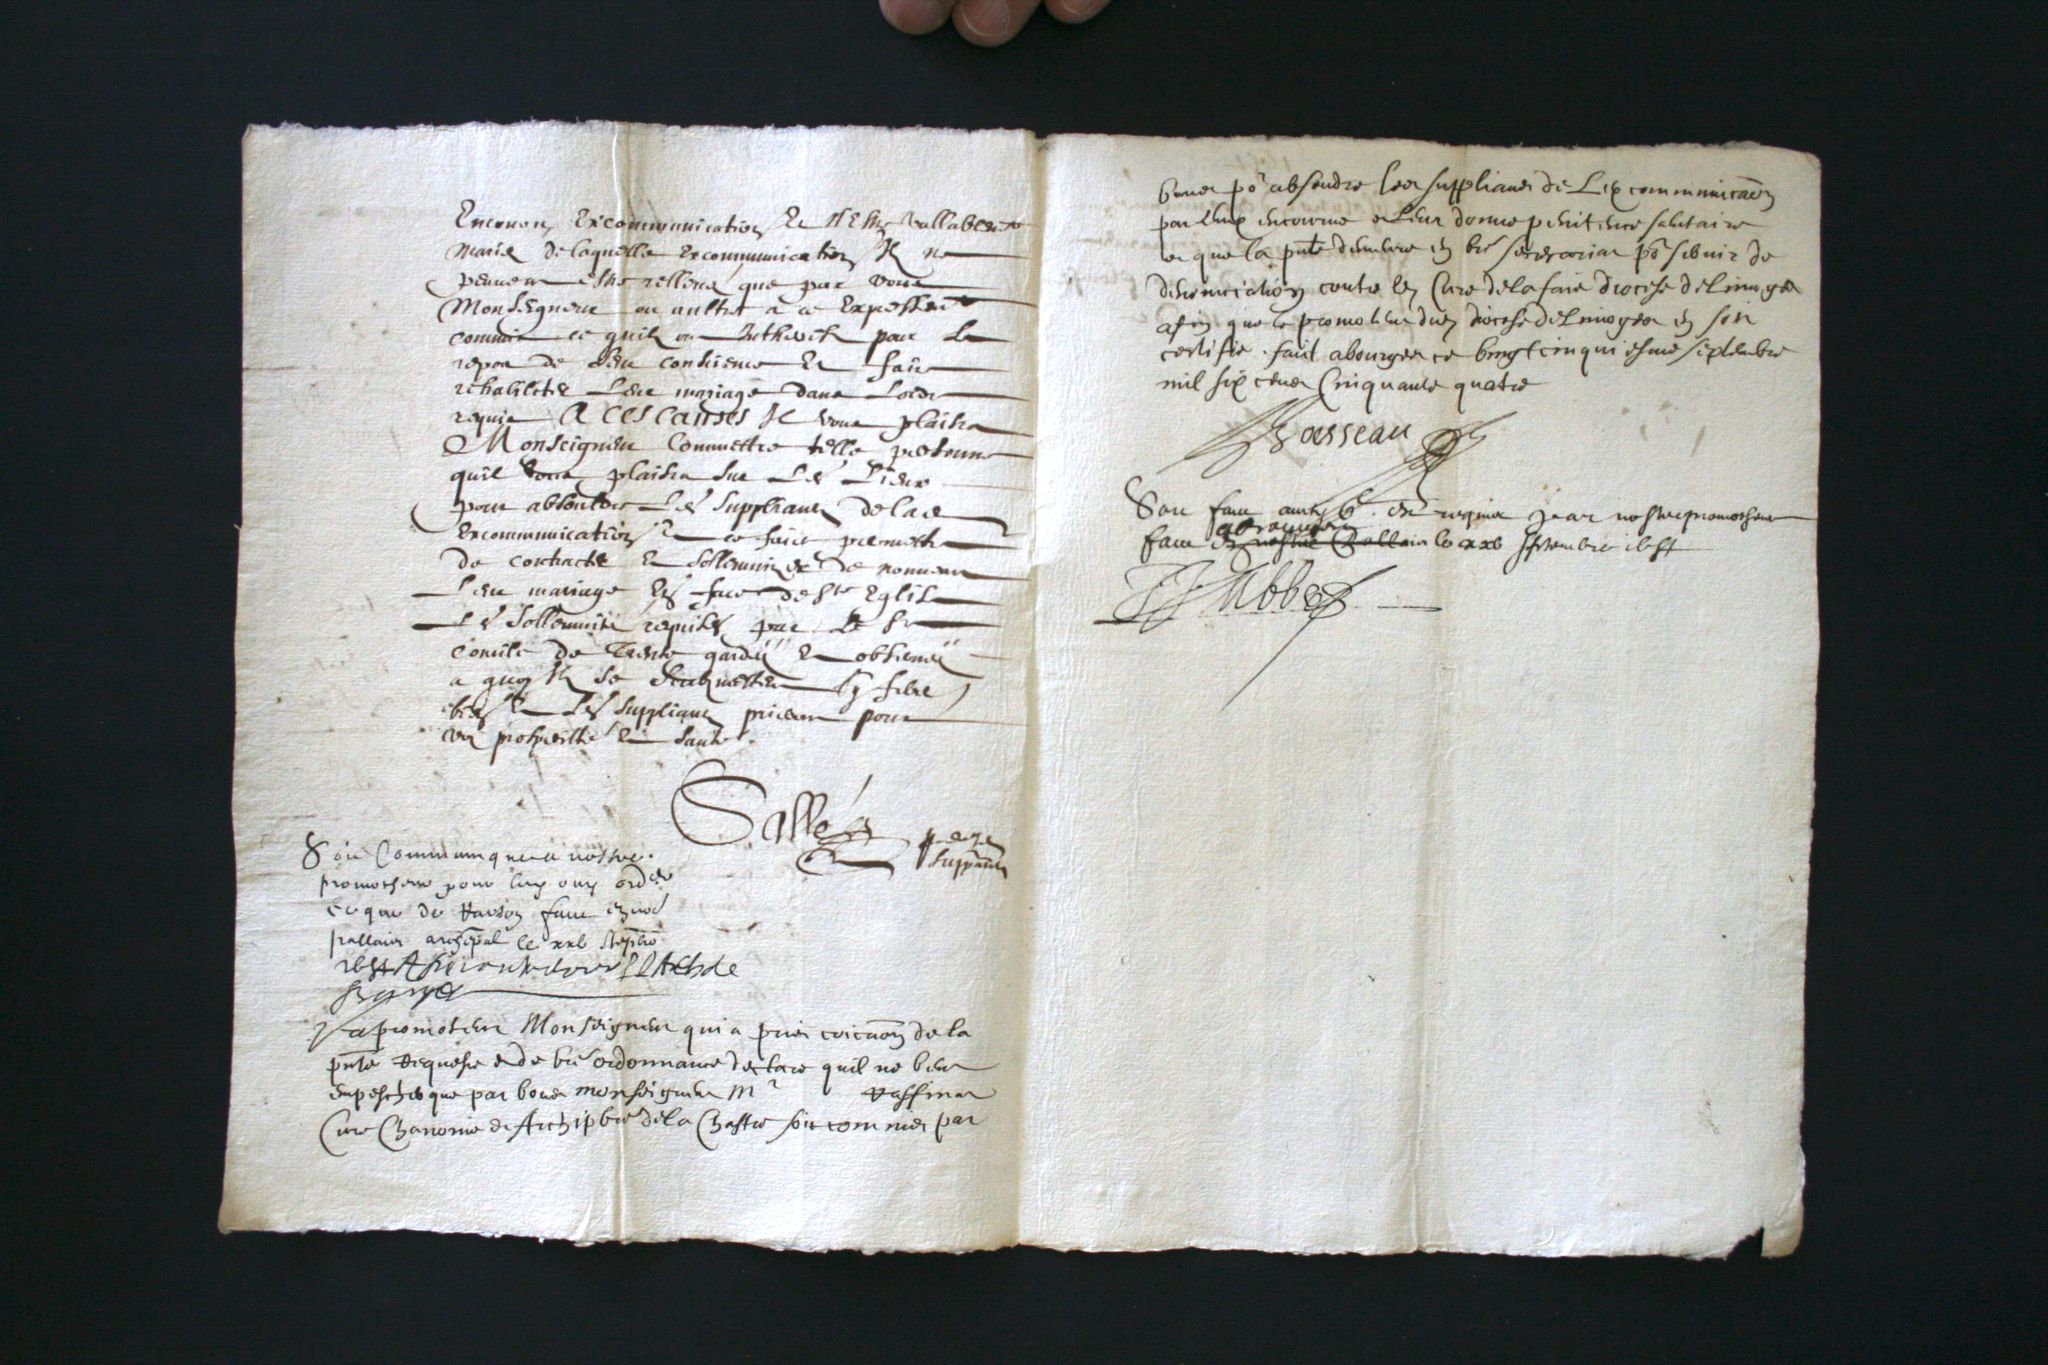 Encourir Excommunication Et n'estre vallablemt
Mariés de laquelle Excommunication Ilz ne
peuvent estre relleves que par vous
Monseigneur ou aultre a ce Expressemt
commis ce quilz ont Interest pour le
repos de leur consience Et faire
rehabiliter leur mariage dans Lordre
requis A CES CAUSES Il vous plaira
Monseigneur Commettre telle personne
quil vous plaira sur Les Lieux
pour absoudre Les suppliants de lade
Excommunication Et ce faict permettre
de contracter Et sollemniser de nouveau
Leur mariage En face de ste Eglise
Les sollemnites requises par Le st
Concile de Trente gardés Et observés
a quoy Ilz se submettent sy feres
bien Et Les suppliants prieront pour
vre prosperité Et santé
Sallé
pr les
supplians
Soit Communiqué a nostre
promotheur pour luy ouy order
ce que de Raison faict en nre
pallais archipal le xxv septbre
1654 A
Le promoteur Monseigneur qui a pris coicaon de la
pnte Requeste et de vre ordonnance declare quil ne veut
empescher que par vous monseigneur Mr Vassinat
Cure Chanoine et Archiptre de la Chastre soit commis par
vous pr absoudre les suppliants de Lexcommunicaon
par eux encourue et leur donne penitence salutaire
et que la pnte demeure en vre secretariat pr servir de
denonciation contre le Curé de la faie diocese de Limoges
afin que le promoteur dud diocese de Limoges en soit
certifié. fait a bourges ce vingt cinquiesme septembre
mil six cents Cinquante quatre
Soit faict ainsy est requis par nostre promotheur
faict le xxv septembre 1654